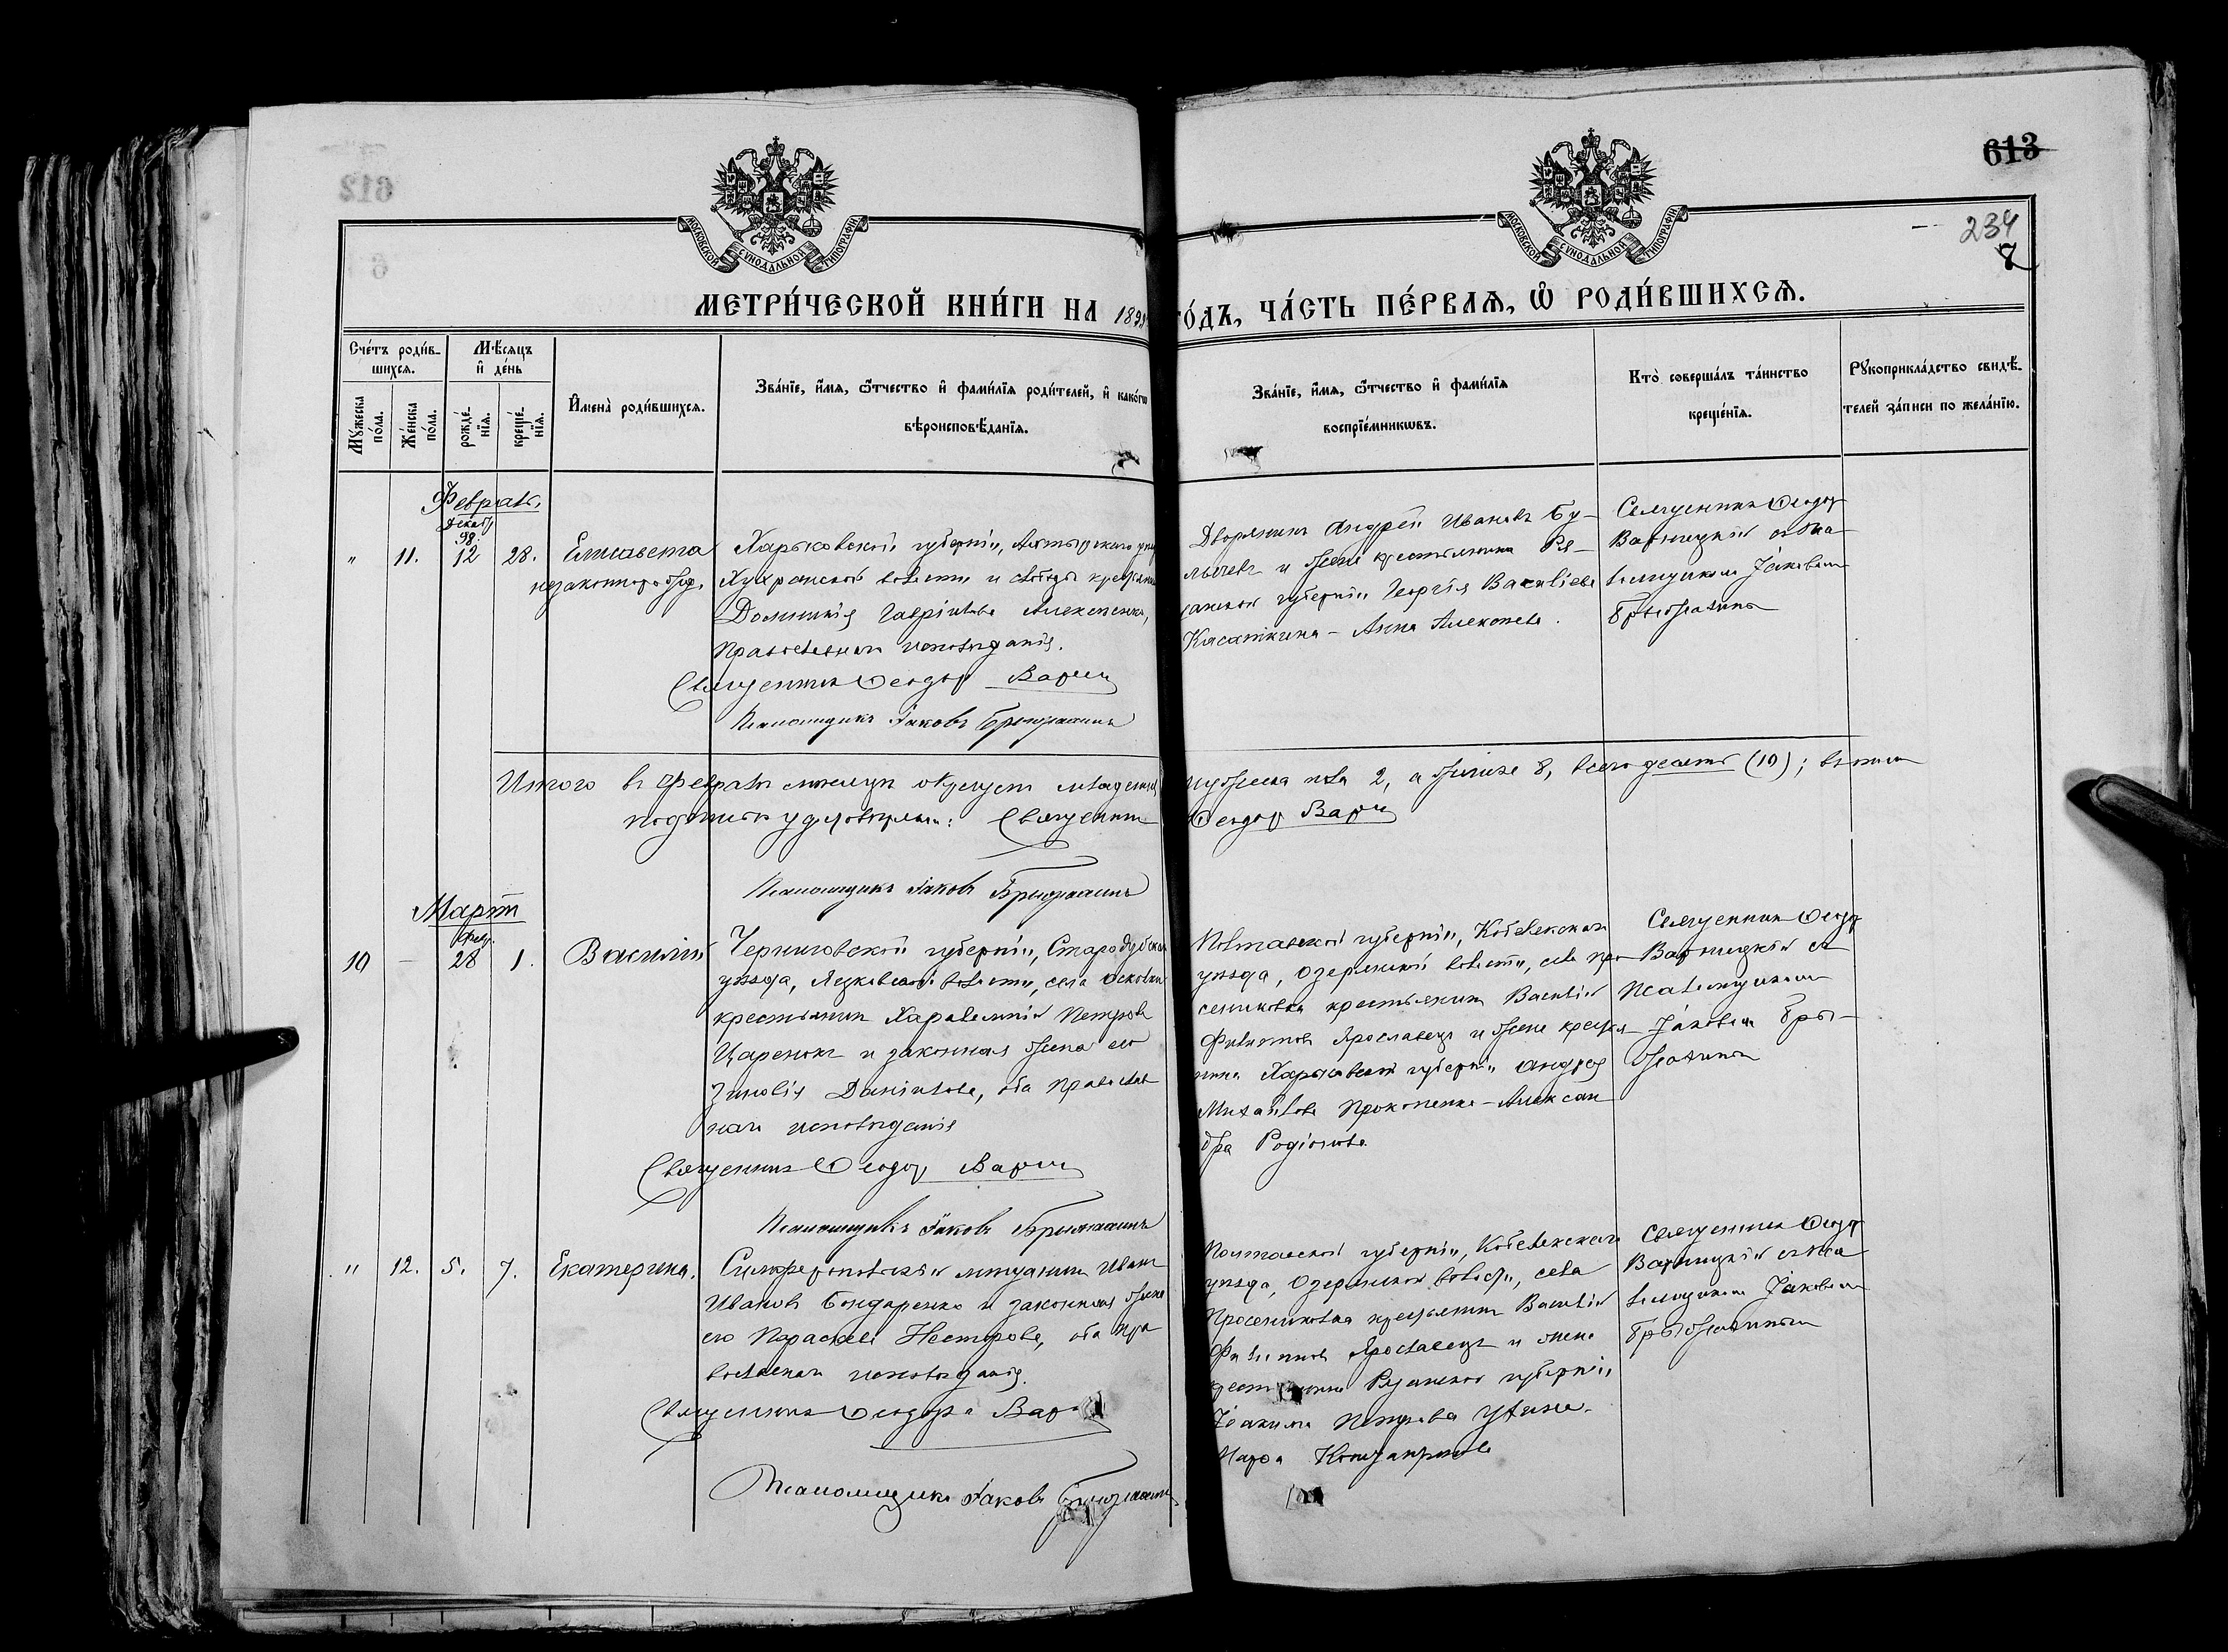 613
612
234
7
6
МОСКОВСКОЙ СѴНОДАЛЬНОЙ ТИПОГРАФІИ
МОСКОВСКОЙ СѴНОДАЛЬНОЙ ТИПОГРАФІИ
МЕТРИ́ЧЕСКОЙ КНИ́ГИ НА 189
ГО́ДЪ, ЧА́СТЬ ПЕ́РВАѦ, Ѿ РОДИ́ВШИХСѦ.
Сче́тъ роди́в-
шихсѧ.
Мꙋ́жеска
по́ла.
Же́нска
по́ла.
Мѣ́сѧцъ
и҆ де́нь
рожде́-
нїѧ.
креще́-
нїѧ.
И҆мена̀ роди́вшихсѧ.
Зва́нїе, и҆́мѧ, ѻ҆́тчество и҆ фами́лїѧ роди́телей, и҆ како́гѡ
вѣроисповѣ́данїѧ.
Зва́нїе, и҆́мѧ, ѻ҆́тчество и҆ фами́лїѧ
воспрїе́мникѡвъ.
Кто̀ соверша́лъ та́инство
креще́нїѧ.
Рꙋкоприкла́дство свидѣ́-
телей за́писи по жела́нїю.
Февраль.
Декабр
98.
" 11. 12 28. Елисавета
незаконнорожд.
Харьковской губерніи, Ахтырского
волости и слободы
Домникія Гавріилова Алексеенко,
Православнаго исповѣданія.
Священникъ Ѳеодоръ Варн
Псаломщикъ Іаковъ Брыжахинъ
Дворянинъ Андрей Ивановъ Бу-
и жена крестьянина Ря-
занской губерніи Георгія Васильева
Касаткина – Анна Алексеева.
Священникъ Ѳеодоръ
Варницкій съ Пса-
ломщикомъ Іаковомъ
Итого въ Февралѣ мѣсяцѣ окрещено младенцевъ
мужеска пола 2, а женска 8, всего десять (10); въ чемъ
подписью удостовѣряемъ: Священникъ
Ѳеодоръ Варн
Псаломщикъ Іаковъ Брыжахинъ
Мартъ
Февр.
10 – 28 1. Василій
Черниговской губерніи, Стародубскаго
уѣзда, волости, села
крестьянинъ Харалампій Петровъ
Царенокъ и законная жена его
Зиновія Даніилова, оба Православ
наго исповѣданія
Священникъ Ѳеодоръ Варн
Псаломщикъ Іаковъ Брыжахинъ
Полтавской губерніи, Кобелякскаго
уѣзда, Озерянской волости, села Про
сяниковки крестьянинъ Василій
Филипповъ Ярославецъ и жена крестья
нина Харьковской губерніи Андрея
Михайлова Прокопенко – Алексан
дра Родіонова
Священникъ Ѳеодоръ
Варницкій съ
Псаломщикомъ
Іаковомъ Бры-
" 12. 5. 7. Екатерина.
Симферопольскій мѣщанинъ Иванъ
Ивановъ Бондаренко и законная жена
его Параскева Несторова, оба пра
вославнаго исповѣданія.
Священникъ Ѳеодоръ Вар
Псаломщикъ Іаковъ
Полтавской губерніи, Кобелякскаго
уѣзда, Озерянской волости, села
Просяниковка крестьянинъ Василій
Филипповъ Ярославецъ и жена
крестьянина Рязанской губерніи
Іоакима Петрова
Священникъ Ѳеодоръ
Варницкій съ Пса-
ломщикомъ Іаковомъ